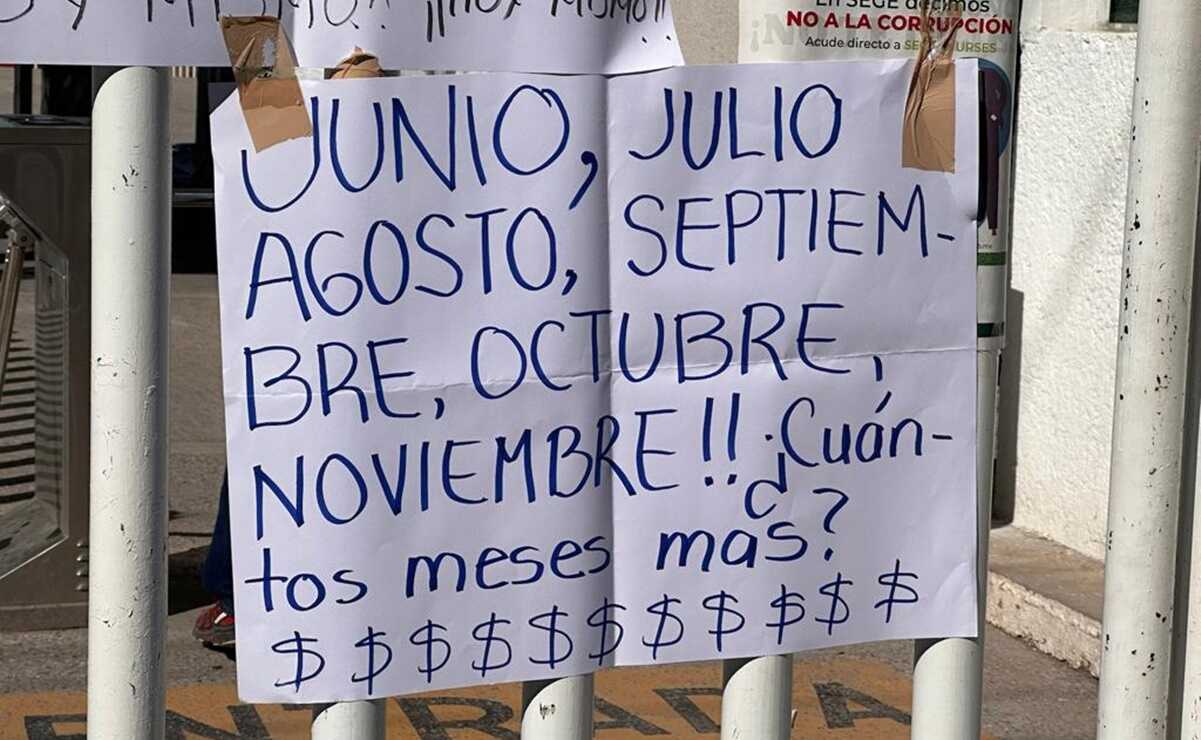 Y MISMO! ¡¡HOY MISMO!!
En SEGE decimos
NO A LA CORRUPCIÓN
Acude directo a
URSES
JUNIO, JULIO
AGOSTO, SEPTIEM-
BRE, OCTUBRE,
NOVIEMBRE!! ¿Cuán-
tos meses mas?
$ $ $ $ $ $ $ $ $ $ $
ENTRADA